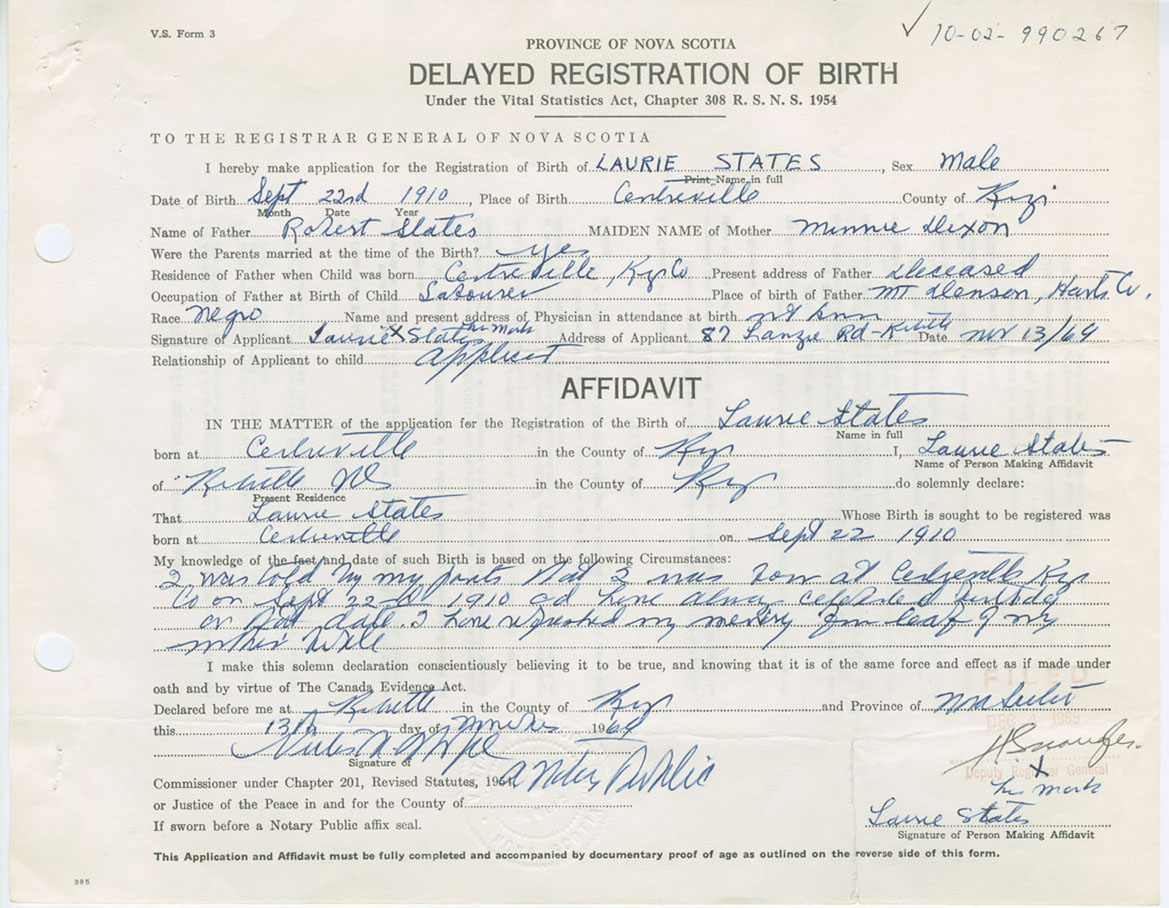 V.S. Form 3
✓ 10-02-990267
PROVINCE OF NOVA SCOTIA
DELAYED REGISTRATION OF BIRTH
Under the Vital Statistics Act, Chapter 308 R. S. N. S. 1954
TO THE REGISTRAR GENERAL OF NOVA SCOTIA
I hereby make application for the Registration of Birth of LAURIE STATES, Sex Male
Print Name in full
Date of Birth Sept 22nd 1910, Place of Birth Centreville County of Kings
Month Date Year
Name of Father Robert States MAIDEN NAME of Mother Minnie Dixon
Were the Parents married at the time of the Birth? yes
Residence of Father when Child was born Centreville, Kgs Co Present address of Father deceased
Occupation of Father at Birth of Child Labourer Place of birth of Father Mt Denson, Hants Co.
Race Negro Name and present address of Physician in attendance at birth
Signature of Applicant Laurie X States his mark Address of Applicant 87 Rd Date Nov 13/69
Relationship of Applicant to child Applicant
AFFIDAVIT
IN THE MATTER of the application for the Registration of the Birth of Laurie States
Name in full
born at Centreville in the County of Kings I, Laurie States
Name of Person Making Affidavit
of NS in the County of Kings do solemnly declare:
Present Residence
That Laurie States Whose Birth is sought to be registered was
born at Centreville on Sept 22 1910
My knowledge of the fact and date of such Birth is based on the following Circumstances:
I was told by my parents that I was born at Centreville Kgs
Co on Sept 22 1910 and have always celebrated birthday
on that date. I have refreshed my memory from leaf of my
mother's Bible
I make this solemn declaration conscientiously believing it to be true, and knowing that it is of the same force and effect as if made under
oath and by virtue of The Canada Evidence Act.
Declared before me at in the County of Kings and Province of Nova Scotia
this 13th day of November 1969
FILED
DEC 4 1969
Signature of
Commissioner under Chapter 201, Revised Statutes, 1954 a Notary Public
Deputy Registrar General
or Justice of the Peace in and for the County of
X
his mark
Laurie States
If sworn before a Notary Public affix seal.
Signature of Person Making Affidavit
This Application and Affidavit must be fully completed and accompanied by documentary proof of age as outlined on the reverse side of this form.
385